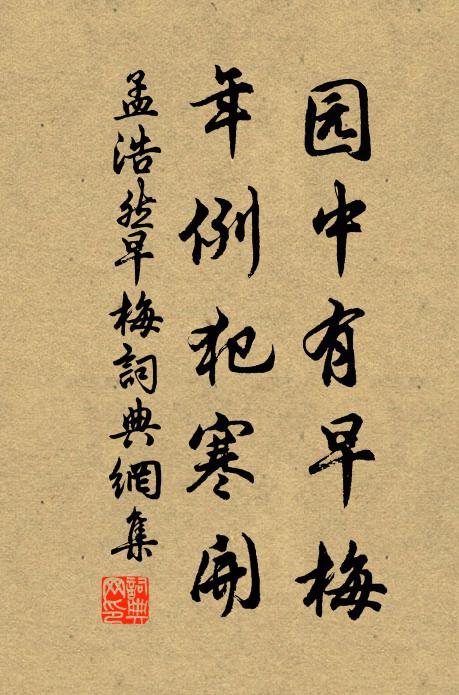 园中有早梅
年例犯寒开
孟浩然早梅詞典網集
詞典网印